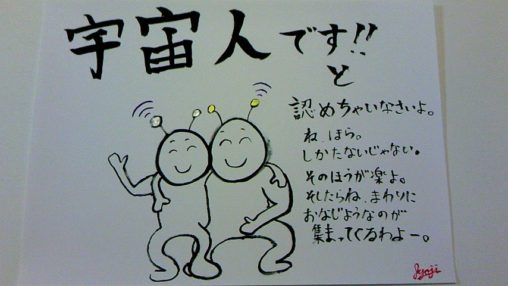 宇宙人です!!
と
認めちゃいなさいよ。
ね、ほら。
しかたないじゃない。
そのほうが楽よ。
そしたらね、まわりに
おなじようなのが
集まってくるわよー。